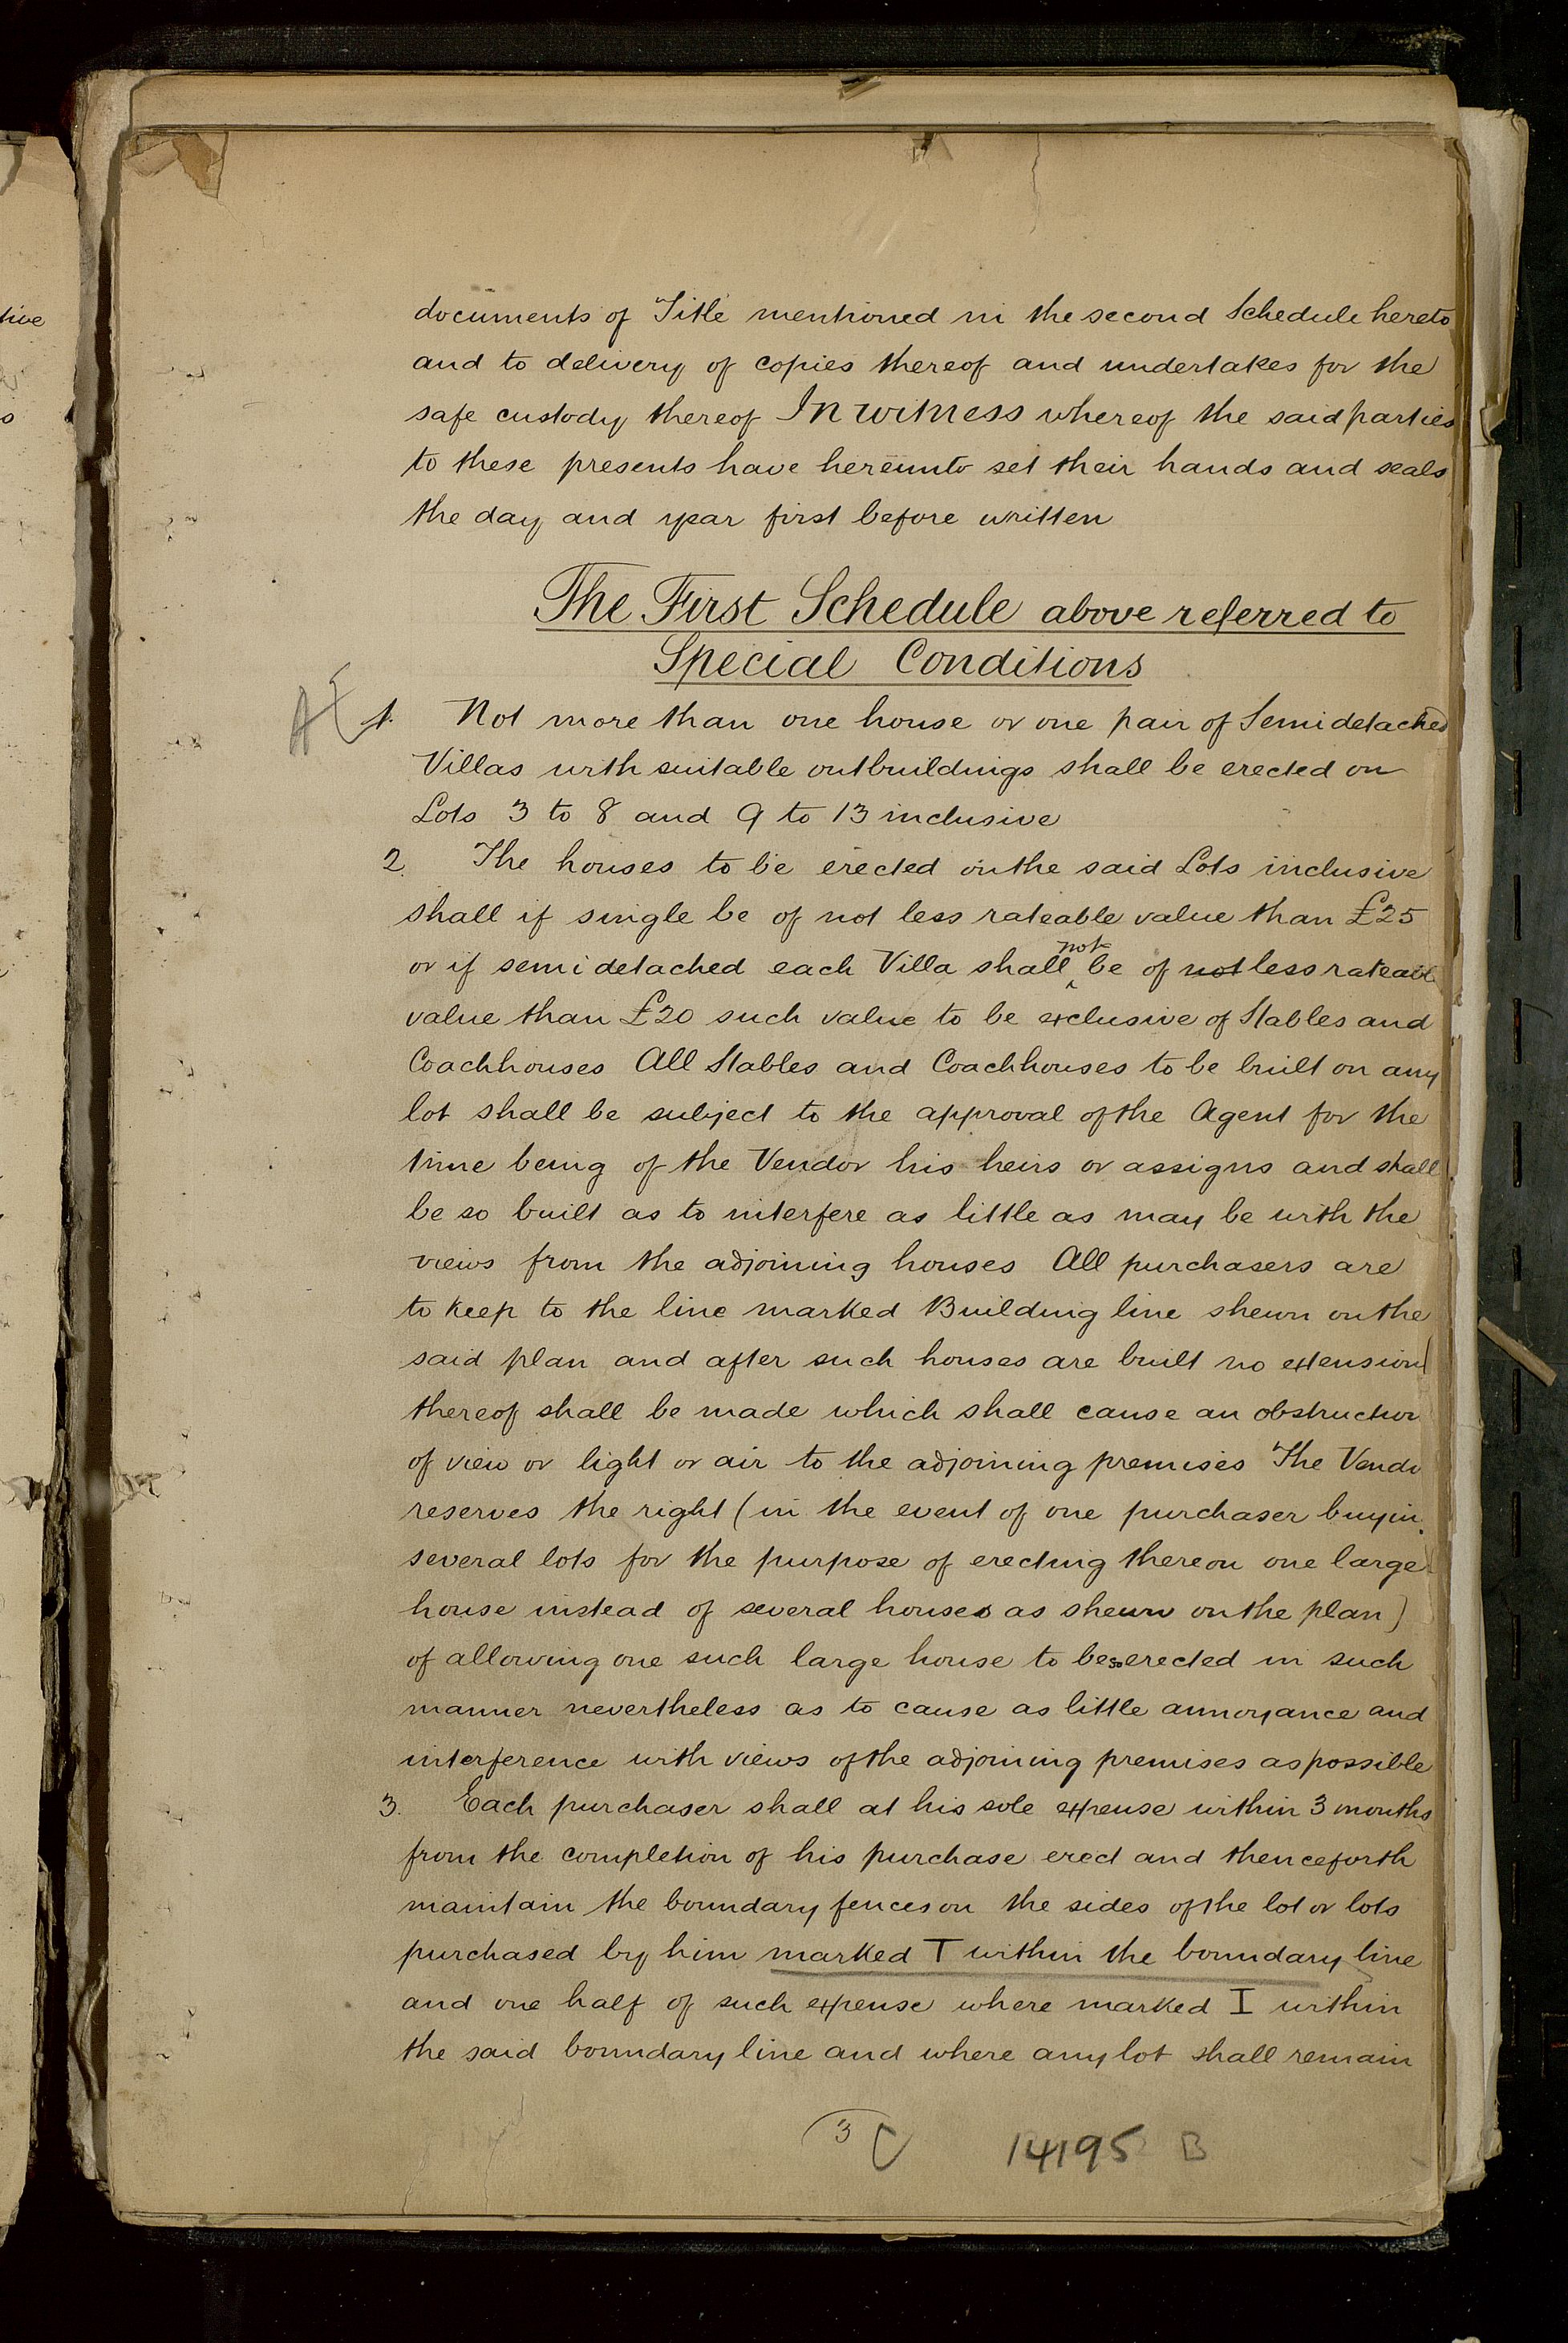 documents of Title mentioned in the second Schedule hereto
and to delivery of copies thereof and undertakes for the
safe custody thereof In witness whereof the said parties
to these presents have hereunto set their hands and seals
the day and year first before written
The First Schedule above referred to
Special Conditions
1. Not more than one house or one pair of Semidetached
Villas with suitable outbuildings shall be erected on
Lots 3 to 8 and 9 to 13 inclusive
2. The houses to be erected on the said Lots inclusive
shall if single be of not less rateable value than £25
or if semidetached each Villa shall not be of not less rateable
value than £20 such value to be exclusive of Stables and
Coachhouses All Stables and Coachhouses to be built on any
lot shall be subject to the approval of the Agent for the
time being of the Vendor his heirs or assigns and shall
be so built as to interfere as little as may be with the
views from the adjoining houses All purchasers are
to keep to the line marked Building line shewn on the
said plan and after such houses are built no extension
thereof shall be made which shall cause an obstruction
of view or light or air to the adjoining premises The Vendo
reserves the right (in the event of one purchaser buyin
several lots for the purpose of erecting thereon one large
house instead of several houses as shewn on the plan)
of allowing one such large house to be so erected in such
manner nevertheless as to cause as little annoyance and
interference with views of the adjoining premises as possible
3. Each purchaser shall at his sole expense within 3 months
from the completion of his purchase erect and thenceforth
maintain the boundary fences on the sides of the lot or lots
purchased by him marked T within the boundary line
and one half of such expense where marked I within
the said boundary line and where any lot shall remain
3 C 14195 B
tive